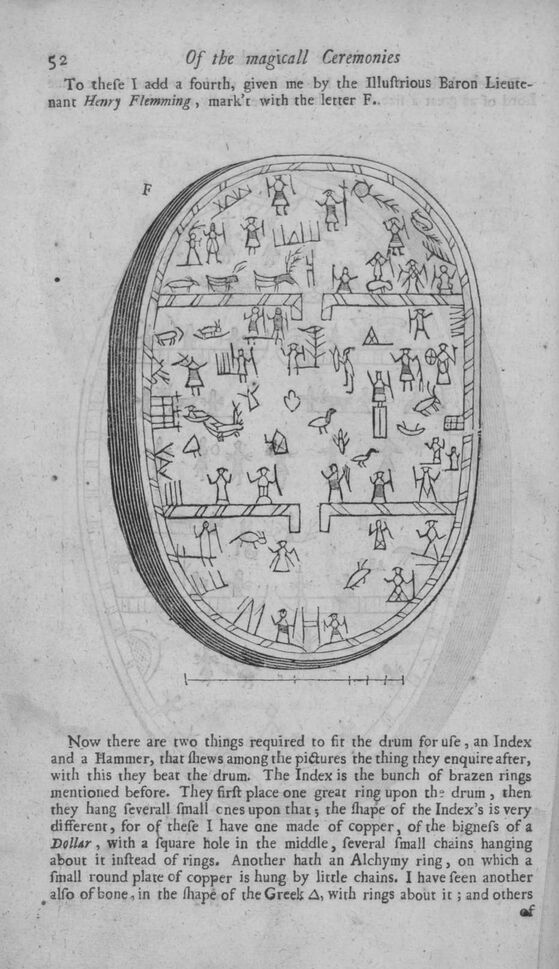 52 Of the magicall Ceremonies
To theſe I add a fourth, given me by the Illuſtrious Baron Lieute-
nant Henry Flemming, mark't with the letter F.
F
Now there are two things required to fit the drum for uſe, an Index
and a Hammer, that ſhews among the pictures the thing they enquire after,
with this they beat the drum. The Index is the bunch of brazen rings
mentioned before. They firſt place one great ring upon the drum, then
they hang ſeverall ſmall ones upon that; the ſhape of the Index's is very
different, for of theſe I have one made of copper, of the bigneſs of a
Dollar, with a ſquare hole in the middle, ſeveral ſmall chains hanging
about it inſtead of rings. Another hath an Alchymy ring, on which a
ſmall round plate of copper is hung by little chains. I have ſeen another
alſo of bone, in the ſhape of the Greek Δ, with rings about it; and others
of